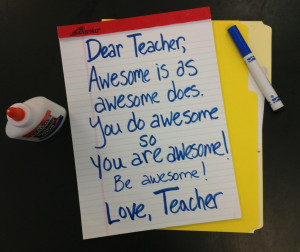 Dear Teacher,
Awesome is as
awesome does.
You do awesome
so
you are awesome!
Be awesome!
Love, Teacher